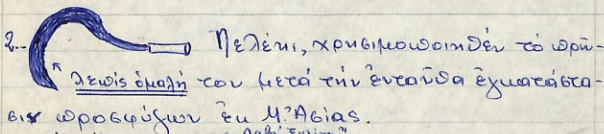 2.. Πελέκι, χρησιμοποιηθέν τό πρῶ-
λεπίς ὁμαλή τον μετά τήν ἐνταῦθα ἐγκατάστα-
σιν προσφύγων ἐκ Μ. Ἀσίας.